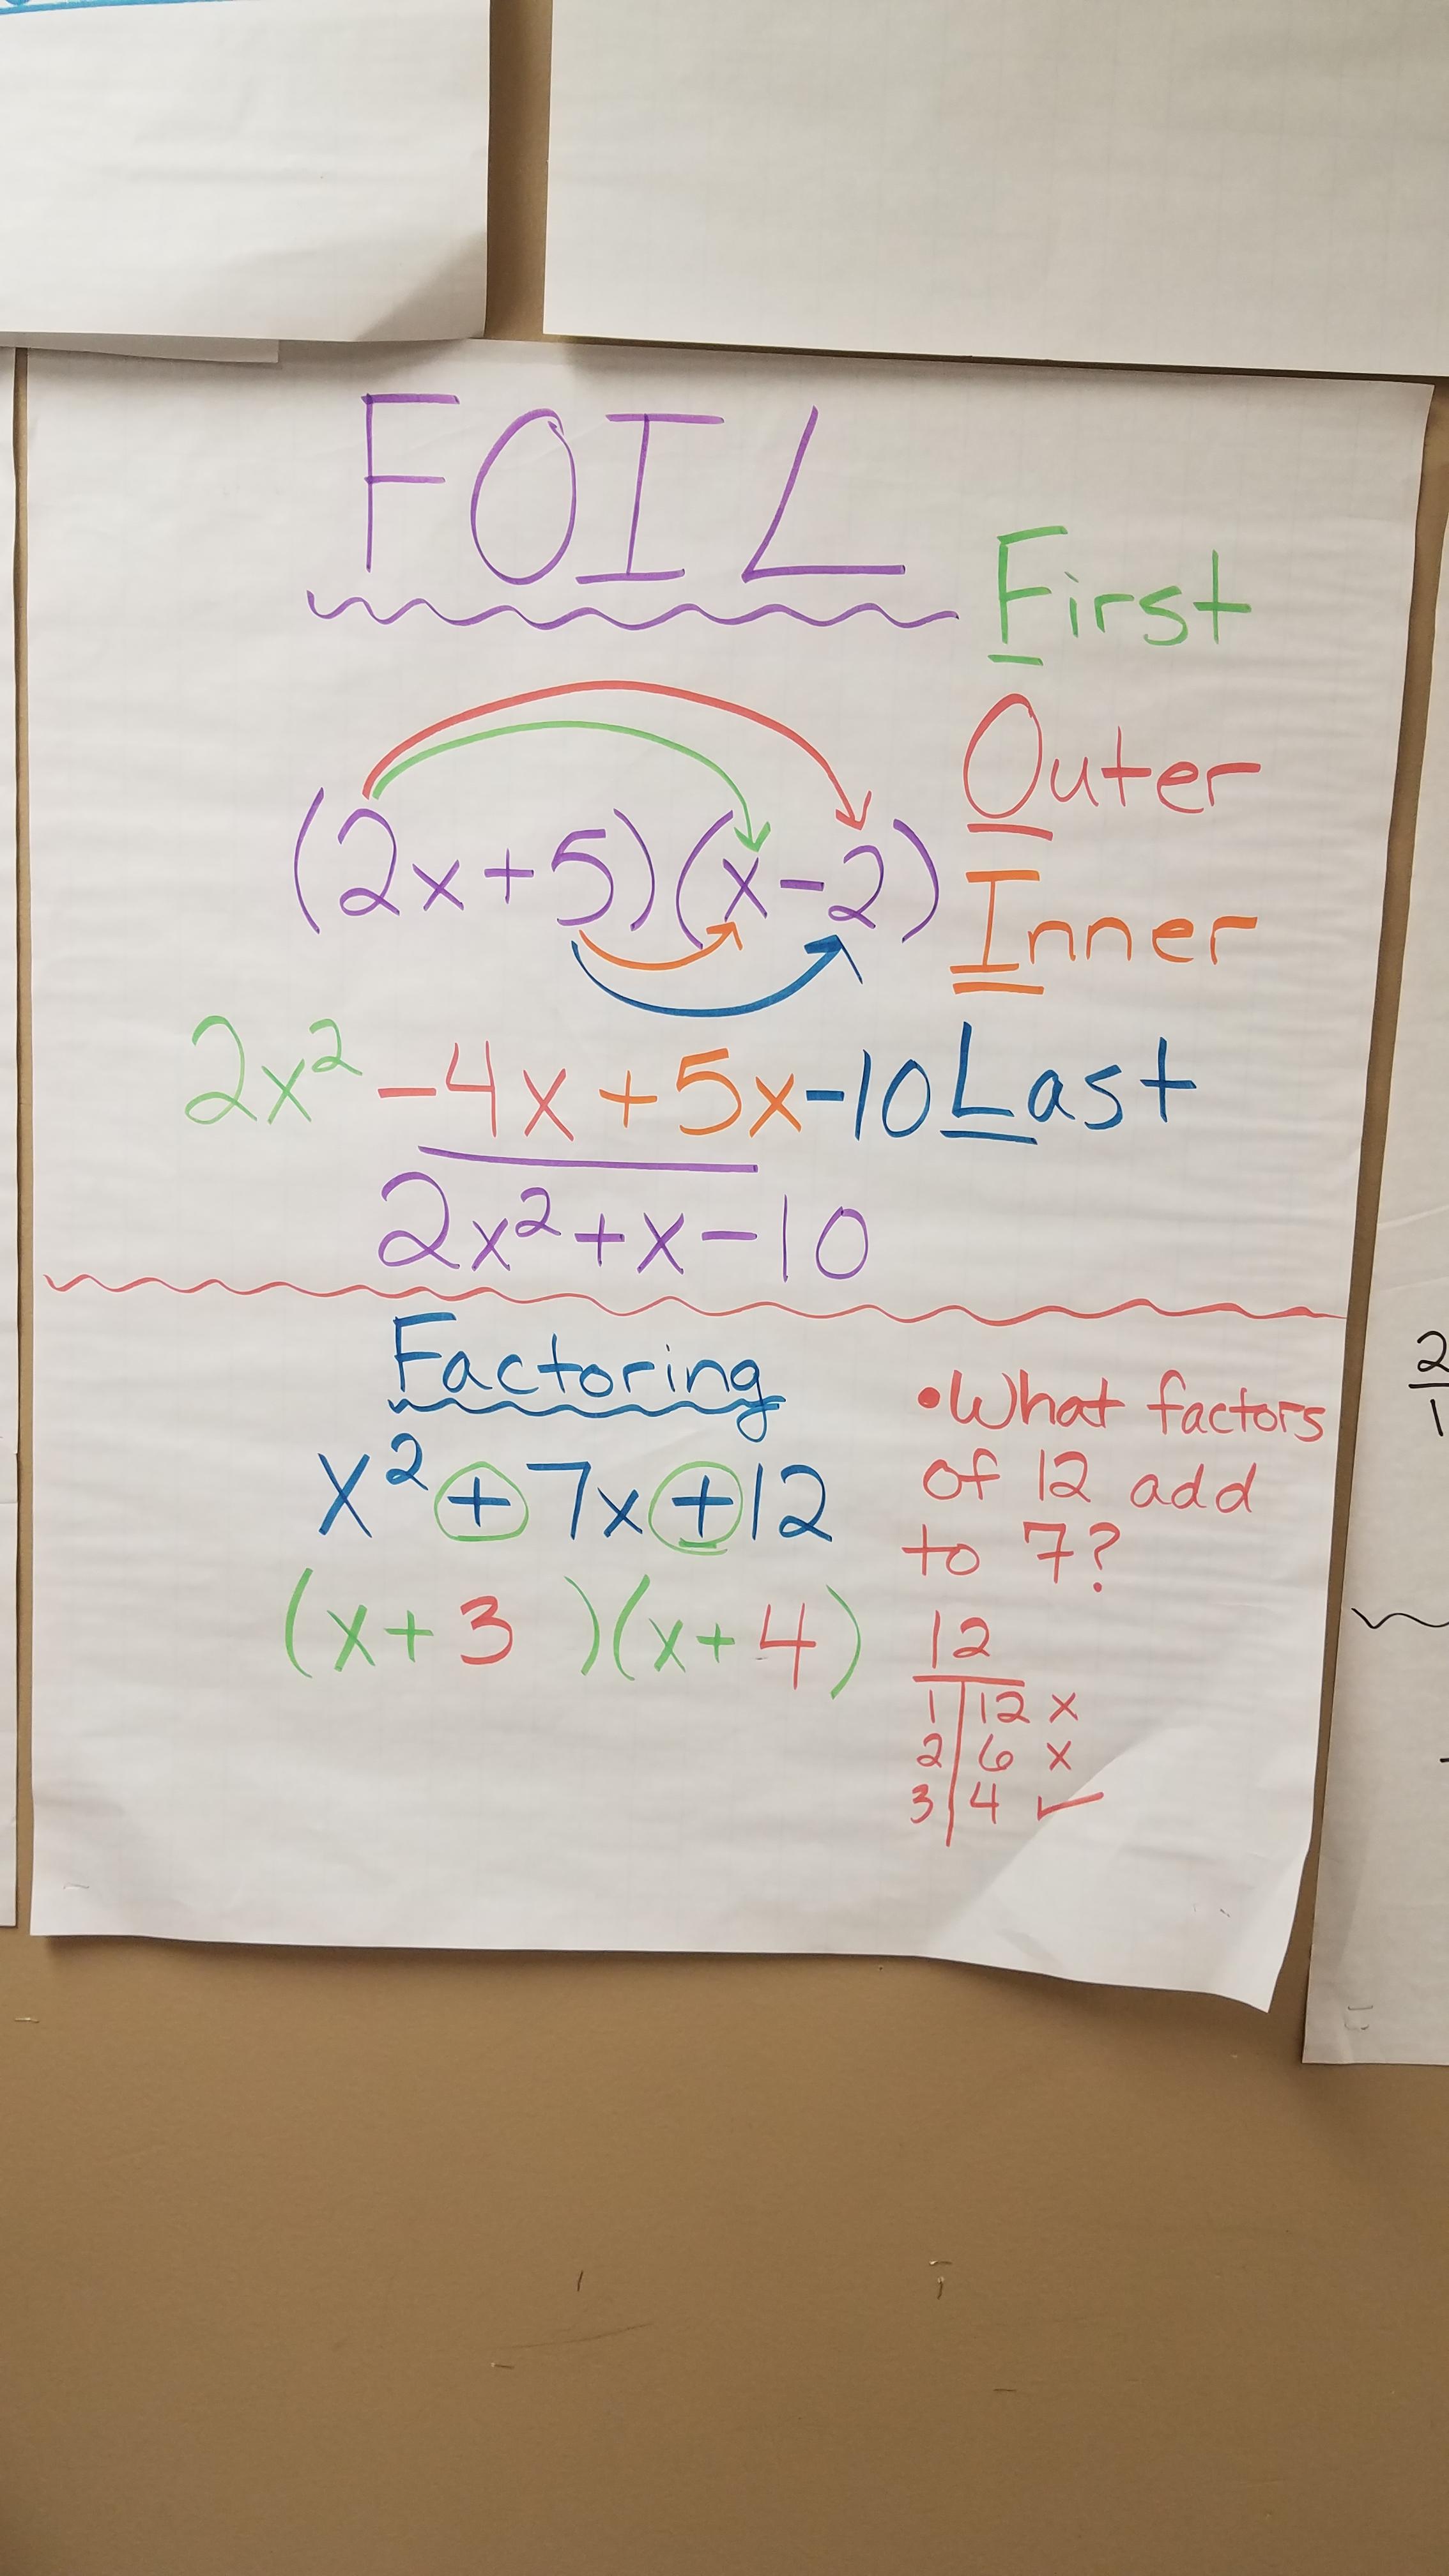 FOIL
First
Outer
(2x+5)(x-2)
Inner
2x² -4x +5x -10
Last
2x²+x-10
Factoring
x² + 7x + 12
(x+3)(x+4)
•What factors
of 12 add
to 7?
12
1 | 12 x
2 | 6 x
3 | 4 ✓
2
1